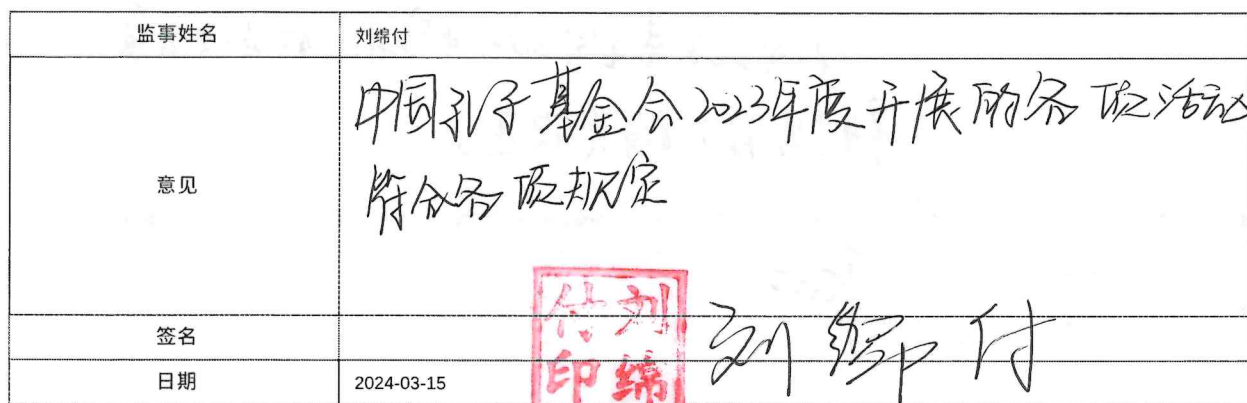 监事姓名
刘绵付
意见
中国孔子基金会2023年度开展的各项活动
符合各项规定
签名
刘绵付
刘绵付印
日期
2024-03-15